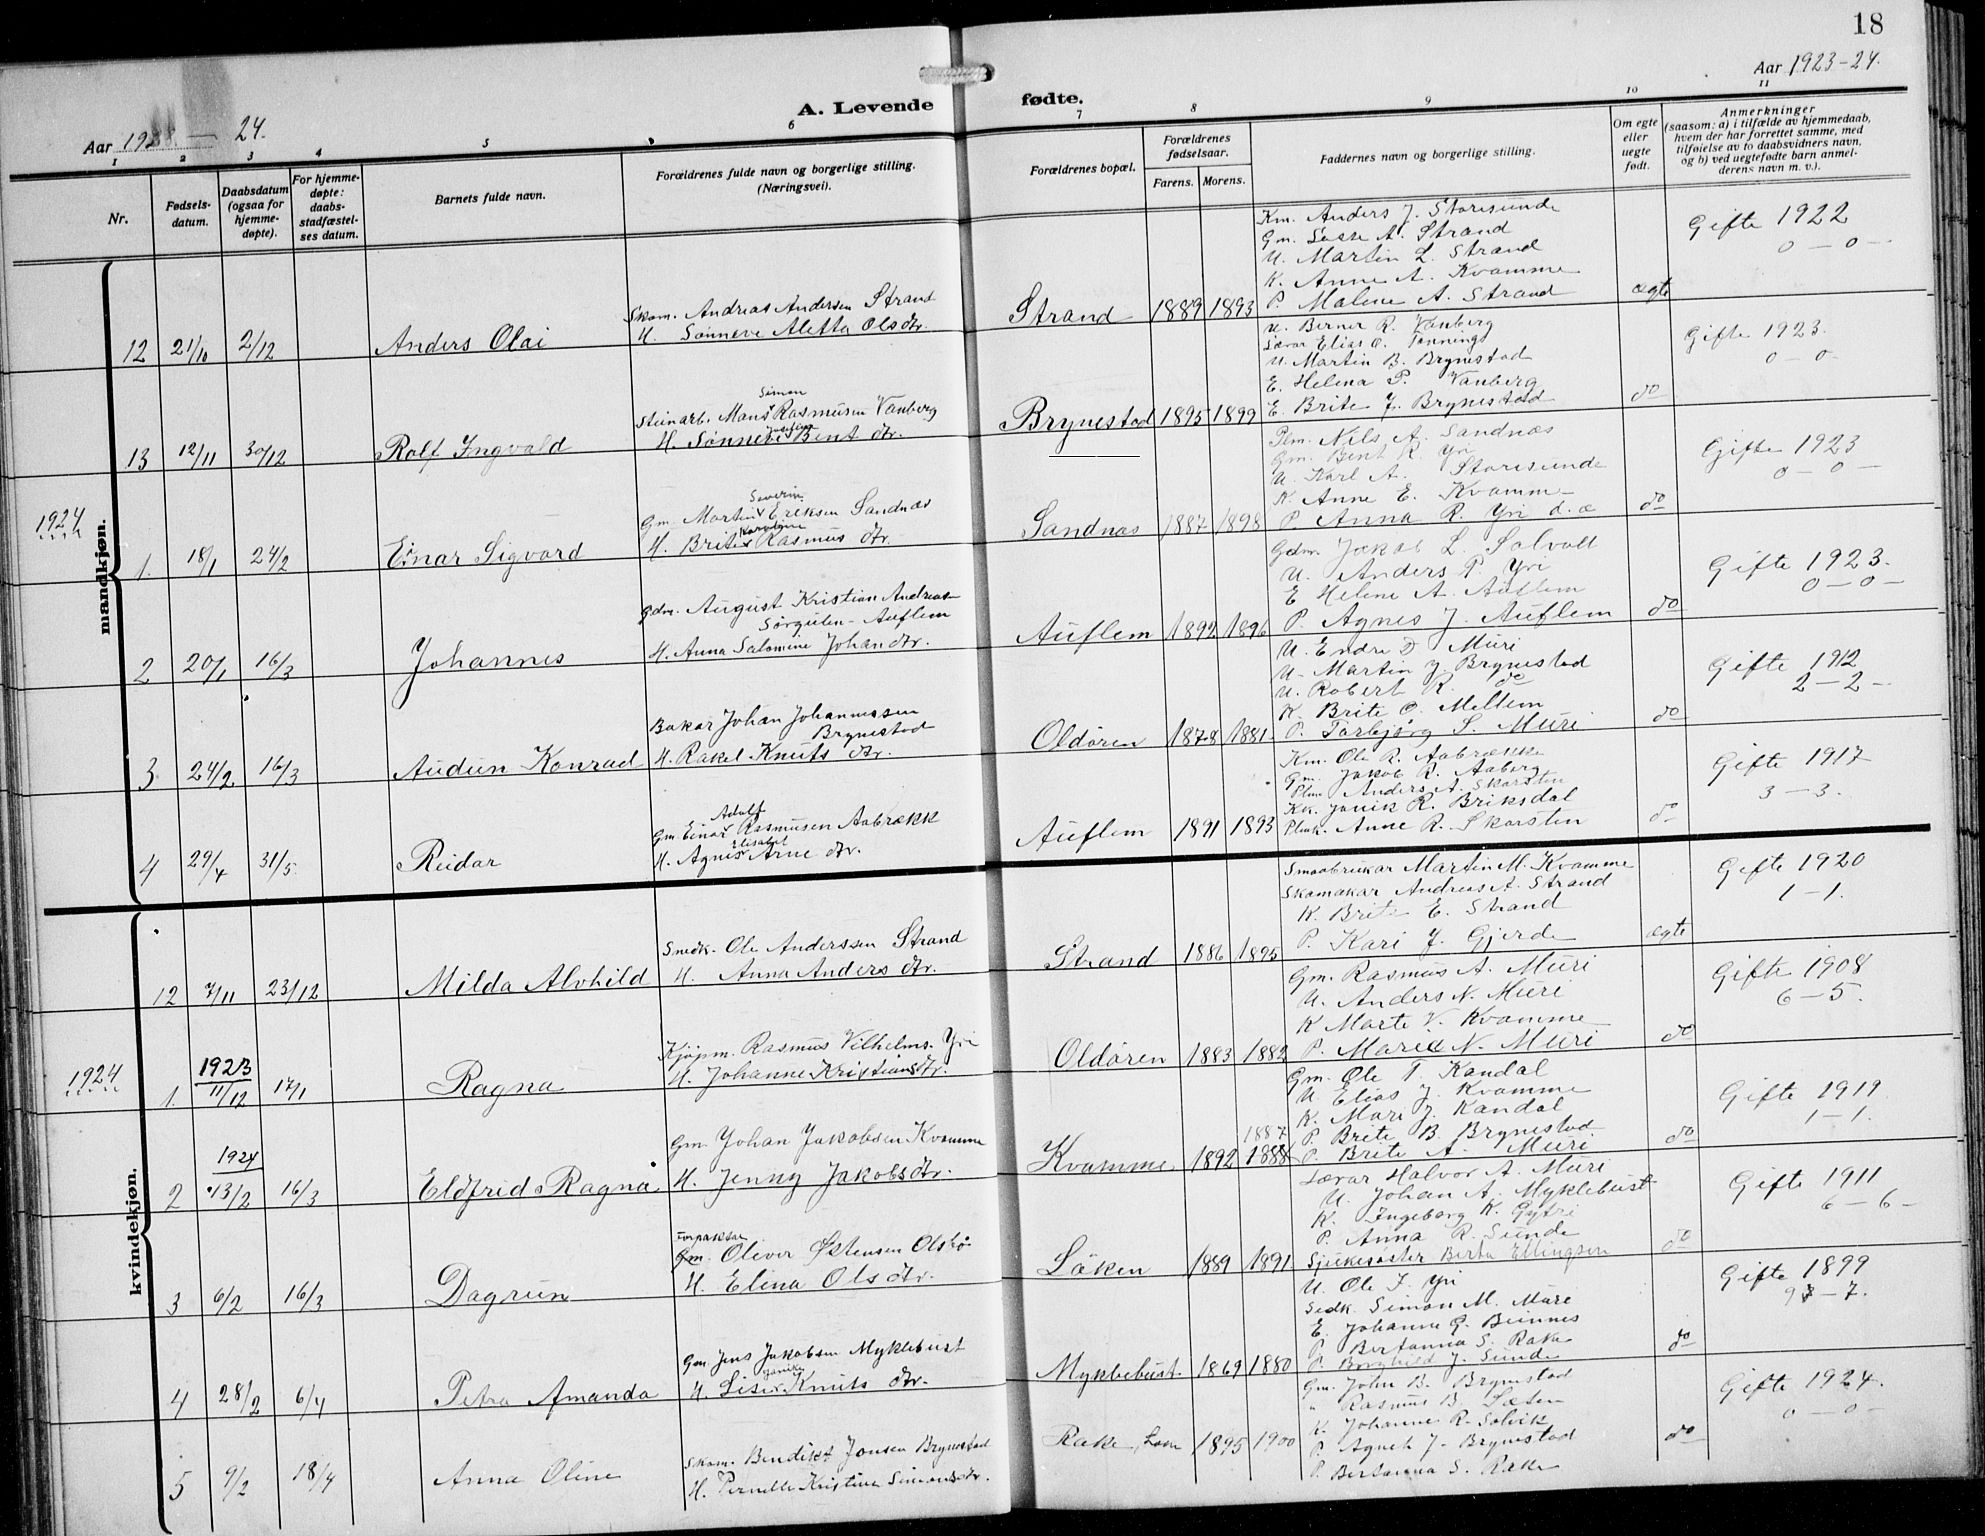 18
Aar 1923-24.
A. Levende fødte.
Aar 1923 — 24.
1 2 3 4 5 6 7 8 9 10 11
Nr.
Fødsels-
datum.
Daabsdatum
(ogsaa for
hjemme-
døpte).
For hjemme-
døpte:
daabs-
stadfæstel-
ses datum.
Barnets fulde navn.
Forældrenes fulde navn og borgerlige stilling.
(Næringsvei).
Forældrenes bopæl.
Forældrenes
fødselsaar.
Farens. Morens.
Faddernes navn og borgerlige stilling.
Om egte
eller
uegte
født.
Anmerkninger
(saasom: a) i tilfælde av hjemmedaab,
hvem der har forrettet samme, med
tilføielse av to daabsvidners navn,
og b) ved uegtefødte barn anmel-
derens navn m. v.).
mandkjøn.
12 21/10 2/12 Anders Olai
Skom. Andreas Andersen Strand
H. Sønneve Aletta Olsdtr.
Strand 1889 1893
Km. Anders J. Storesunde
Gm. Lasse A. Strand
U. Martin L. Strand
K. Anne A. Kvamme
P. Malene A. Strand
ægte
Gifte 1922
0 — 0 —
13 12/11 30/12 Rolf Ingvald
Simon
Steinarb. Mons Rasmusen Vanberg
Josefine
H. Sønneve Bent dtr.
Brynestad 1895 1899
U. Berner R. Vanberg
Lærar Elias O. Tonnings
U. Martin B. Brynestad
E. Helena P. Vanberg
E. Brite J. Brynestad
do
Gifte 1923.
0 — 0
1924
1. 18/1 24/2 Einar Sigvard
Severin
Gm. Martin Eriksen Sandnæs
Karoline
H. Brite Rasmus dtr.
Sandnæs 1887 1898
Plm. Nils A. Sandnæs
Gm. Bent R. Yri
U. Karl A. Storesunde
K. Anne E. Kvamme
P. Anna R. Yri d. æ
do
Gifte 1923
0 — 0 —
2 20/1 16/3 Johannes
Gdm. August Kristian Andreas
Sørgulen - Auflem
H. Anna Salomine Johandtr.
Auflem 1892 1896
Gdm. Jakob L. Solvoll
U. Anders P. Yri
E Helene A. Auflem
P. Agnes J. Auflem
do
Gifte 1923.
0 — 0 —
3 24/2 16/3 Audun Konrad
Bakar Johan Johannessen
Brynestad
H. Rakel Knuts dtr.
Oldøren 1878 1881
U. Endre D Muri
U. Martin J. Brynestad
U. Robert R. do
K. Brite O. Meltem
P. Torbjørg S. Muri
do
Gifte 1912
2 — 2 —
4 29/4 31/5. Reidar
Adolf
Gm Einar Rasmusen Aabrækk
Elisabet
H. Agnes Arne dtr.
Auflem 1891 1893
Km. Ole R. Aabrække
Gm. Jakob R. Aaberg
Plm. Anders A. Skarsten
Kk. Janik R. Briksdal
Plmk. Anne R. Skarsten
do
Gifte 1917
3 — 3.
kvindekjøn.
12 7/11 23/12 Milda Alvhild
Snedk. Ole Anderssen Strand
H. Anna Anders dtr.
Strand 1886 1895
Smaabrukar Martin M. Kvamme
Skomakar Andreas A. Strand
K. Brite E. Strand
P. Kari J. Gjerde
ægte
Gifte 1920
1 — 1.
1924
1. 1923 11/12 17/1 Ragna
Kjøpm. Rasmus Vilhelms. Yri
H. Johanne Kristiansdtr.
Oldøren 1883 1882
Gm. Rasmus A. Muri
U. Anders N. Muri
K Marte V. Kvamme
P. Maria N. Muri
do
Gifte 1908
6 — 5.
2 1924 13/2 16/3 Eldfrid Ragna
Gm. Johan Jakobsen Kvamme
H. Jenny Jakobsdtr.
Kvamme. 1892 1888 1887
Gm. Ole T. Kandal
U. Elias J. Kvamme
K. Mari J. Kandal
P. Brite B. Brynestad
P. Brite A. Muri
do
Gifte 1919
1 — 1.
3 6/2 16/3 Dagrun
Forpaktar
Gm. Oliver Østensen Olsbø
H. Elina Ols dtr.
Løken 1889 1891
Lærar Halvor A. Muri
U. Johan A. Myklebust
K. Ingeborg K. Gytri
P. Anna R. Sunde
Sjukesøster Berta Ellingsen
do
Gifte 1911
6 — 6 —
4 28/2 6/4 Petra Amanda
Gm Jens Jakobsen Myklebust
Janike
H. Lise Knuts dtr.
Myklebust 1869 1880
U. Ole I. Yri
Sedk. Simon M. Mure
E. Johanne G. Beinnes
P. Bertanna S. Rake
P. Borghild J. Sunde
do
Gifte 1899
9 — 7.
5 9/2 18/4 Anna Oline
Skom. Bendikt Jonsen Brynestad
H. Pernille Kristine Simonsdtr.
Rake, Loen 1895 1900
Gm. John B. Brynestad
" Rasmus B. Sæten
K. Johanne R. Solvik
P. Agnet J. Brynestad
P. Bertanna S. Rake
do
Gifte 1924.
0 — 0 —